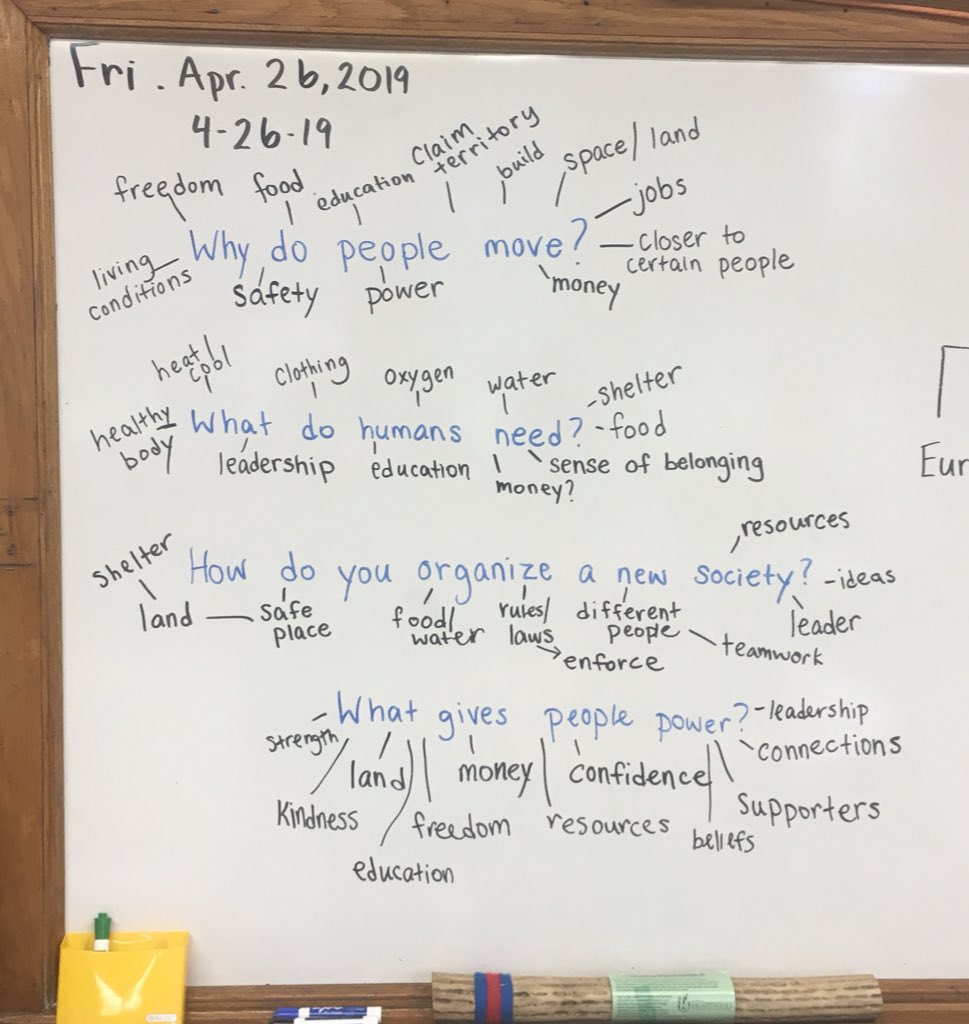 Fri. Apr. 26, 2019
4-26-19
freedom
food
education
claim
territory
build
space/land
jobs
Why do people move?
closer to
certain people
living
conditions
safety
power
money
heat/
cool
clothing
oxygen
water
shelter
healthy
body
What do humans need?
food
leadership
education
money?
sense of belonging
Eur
resources
shelter
How do you organize a new society?
ideas
land
safe
place
food/
water
rules/
laws
enforce
different
people
teamwork
leader
What gives people power?
leadership
connections
strength
land
money
confidence
supporters
kindness
freedom
resources
beliefs
education